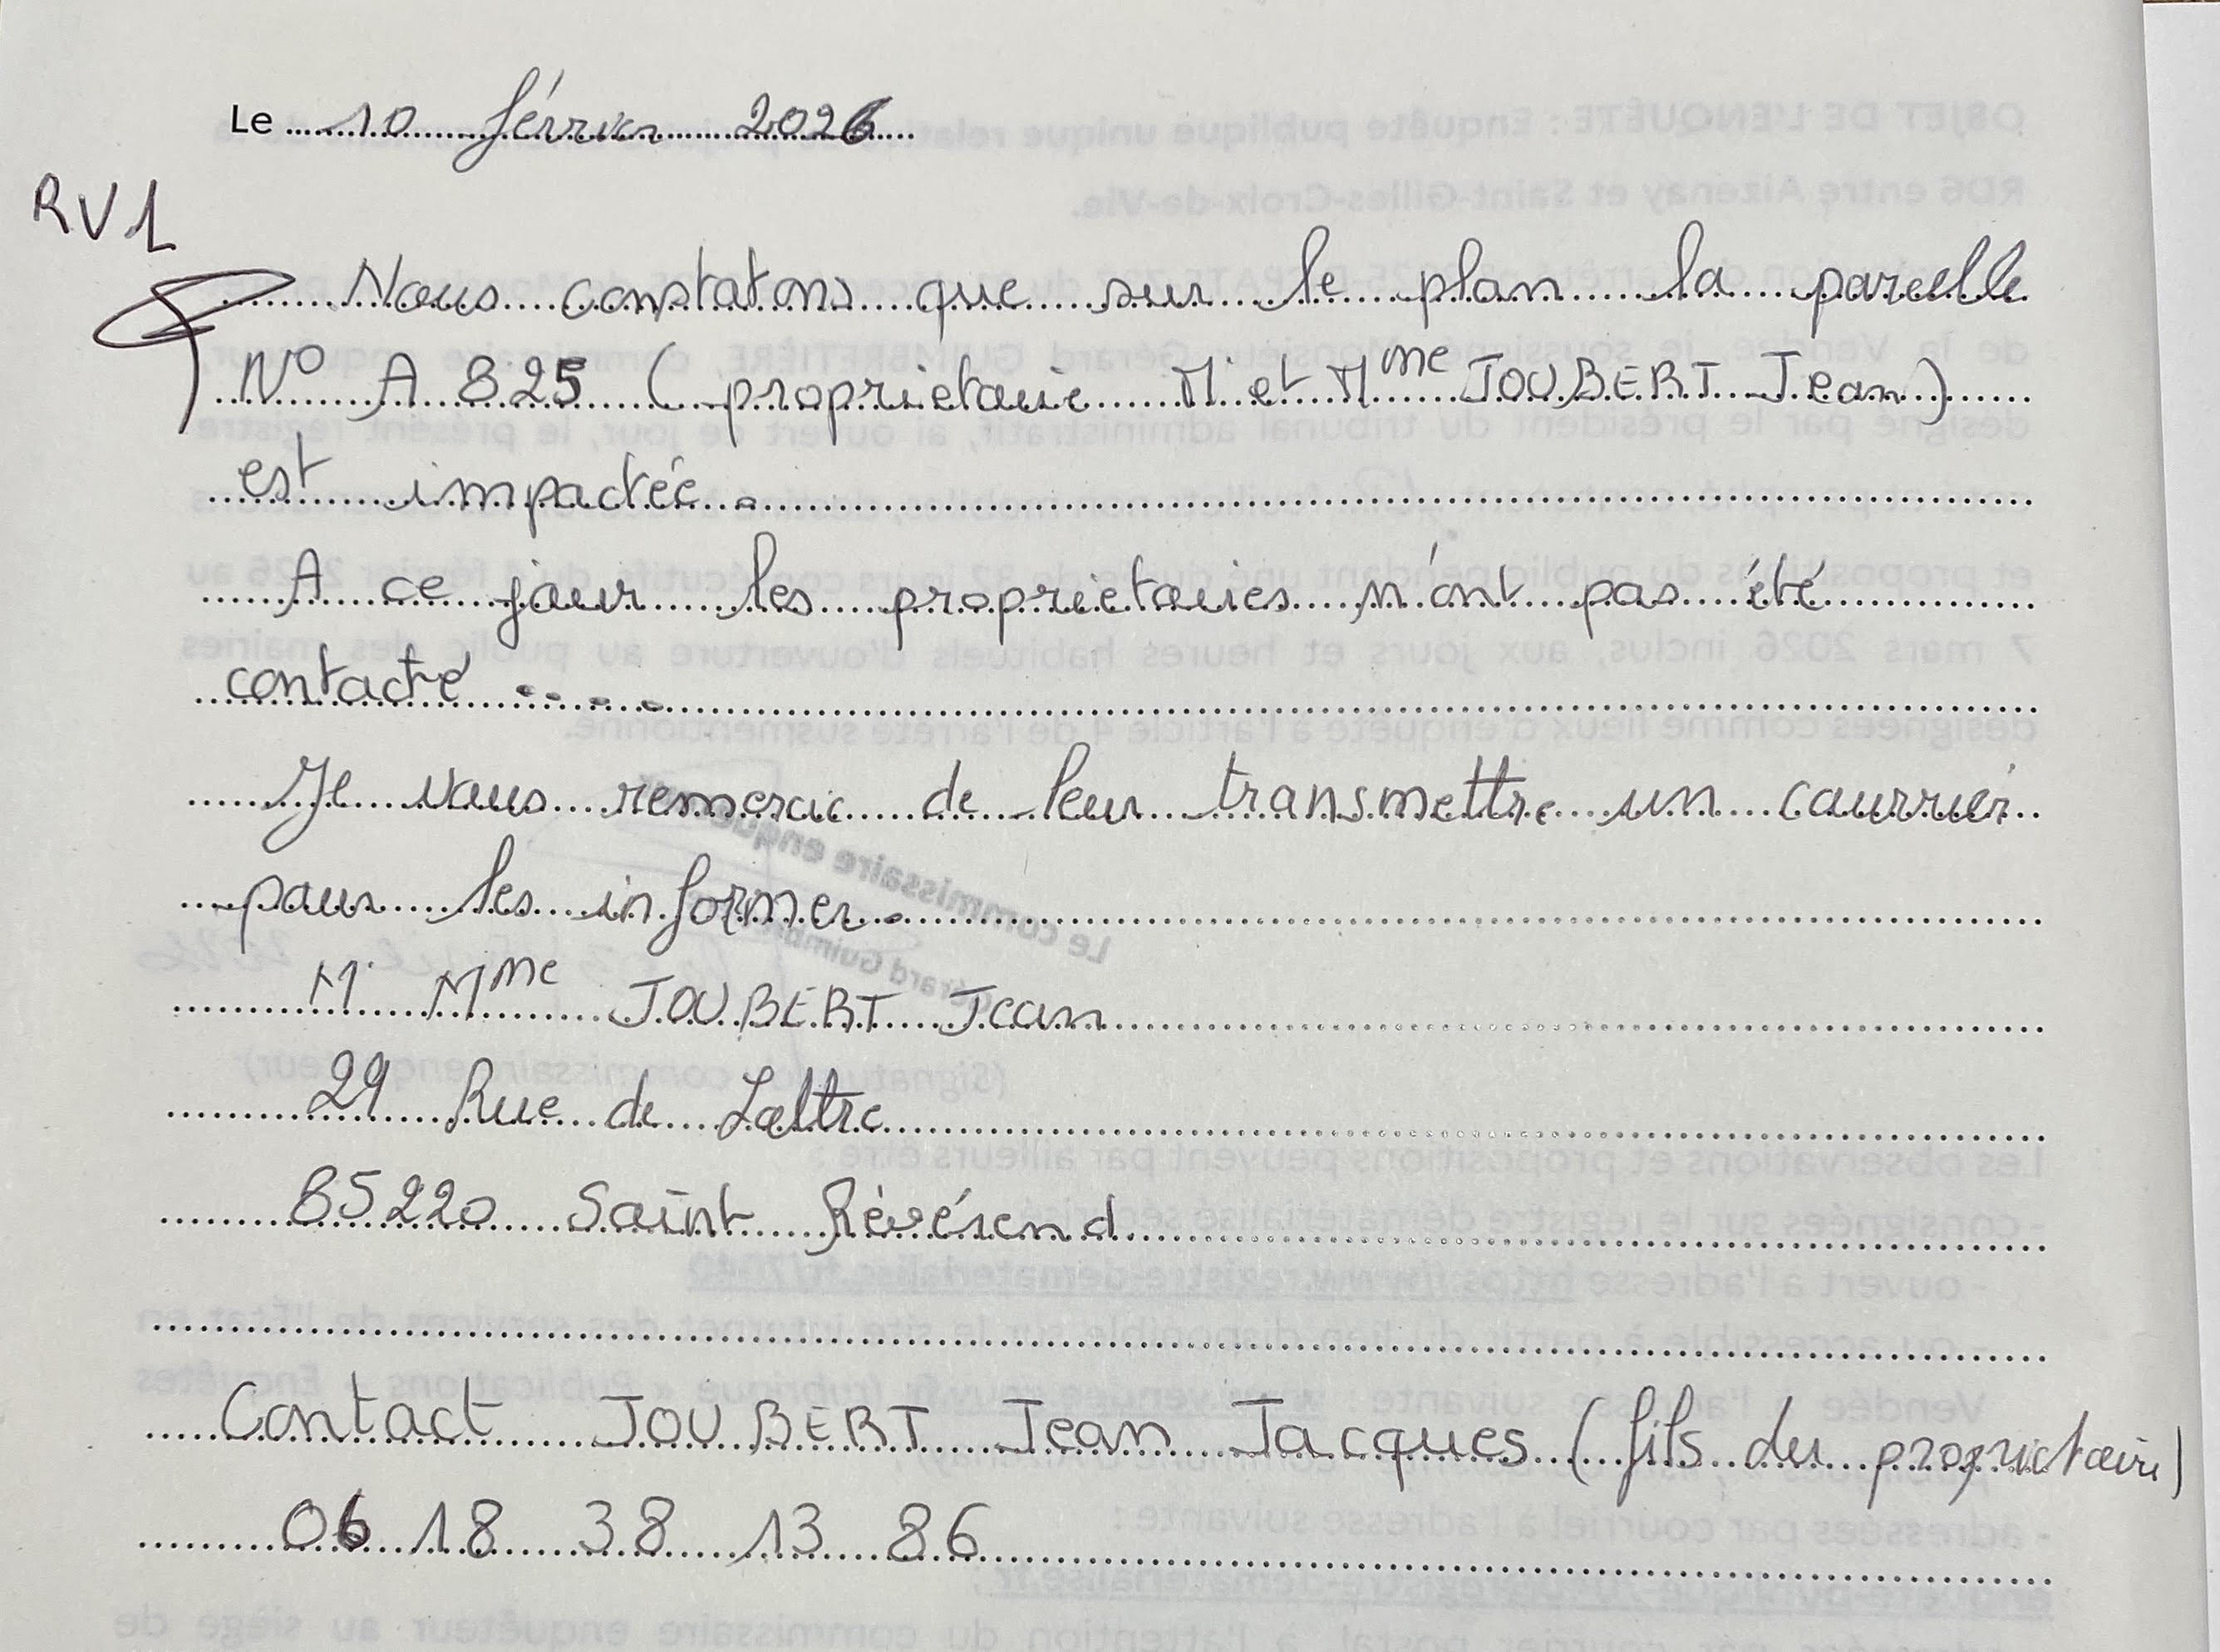 Le 10 février 2026
RV1
Nous constatons que sur le plan la parcelle
N° A 825 (proprietaire M et Mme JOUBERT Jean)
est impactée.
A ce jour les proprietaires n'ont pas été
contacté .....
Je vous remercie de leur transmettre un courrier
pour les informer.
M. Mme JOUBERT Jean
29 Rue de Lattre
85220 Saint Révérend
Contact JOUBERT Jean Jacques (fils du proprietaire)
06 18 38 13 86